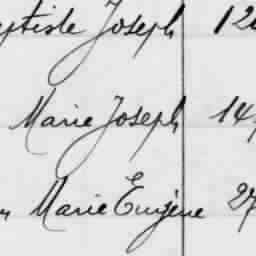 Joseph 12
Marie Joseph 14
Marie Eugène 27